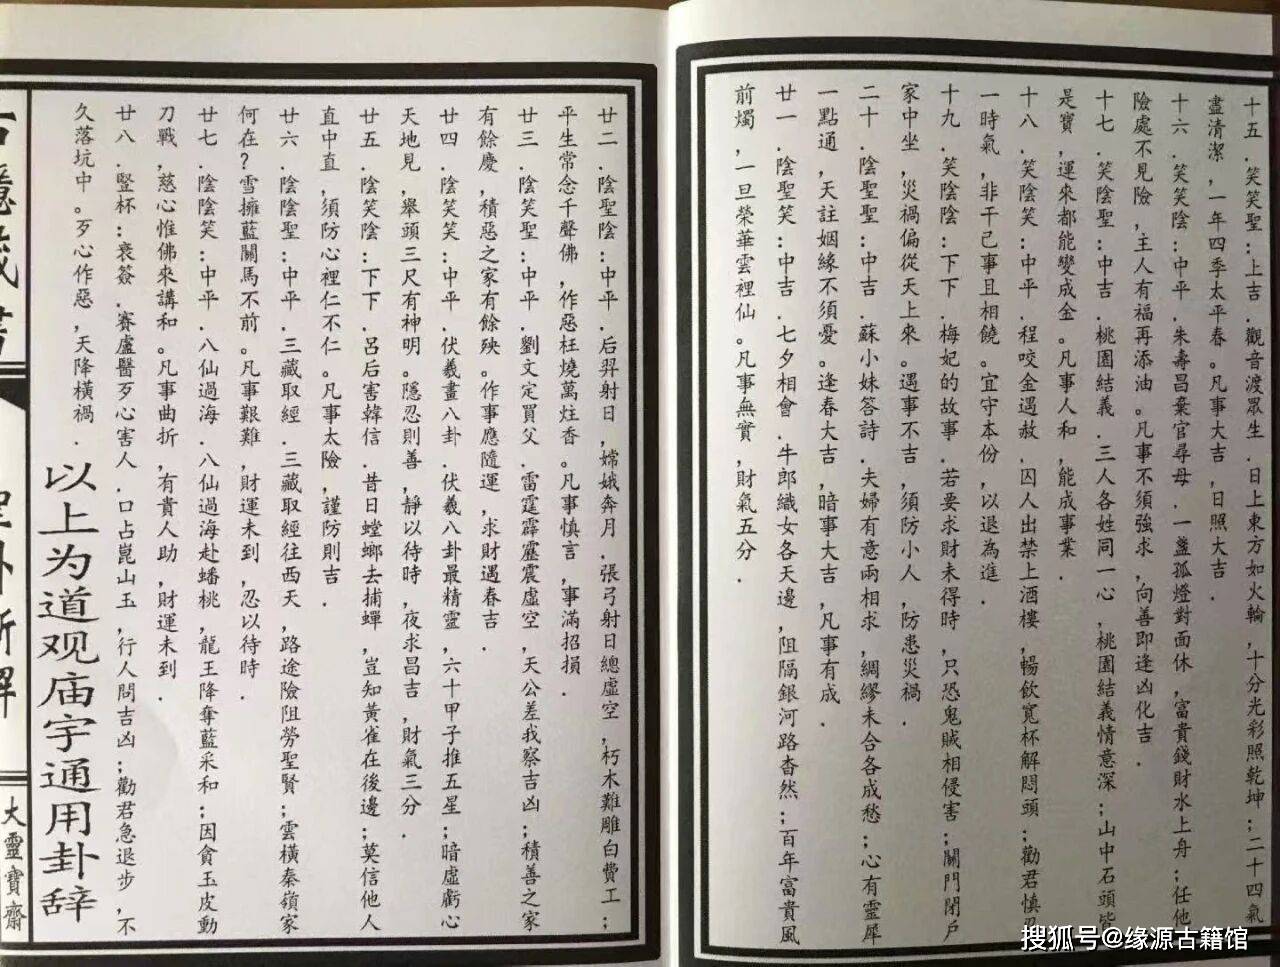 十五．笑笑聖：上吉．觀音渡眾生．日上東方如火輪，十分光彩照乾坤；二十四氣
盡清潔，一年四季太平春。凡事大吉，日照大吉．
十六．笑笑陰：中平．朱壽昌棄官尋母．一盞孤燈對面休，富貴錢財水上舟；任他
險處不見險，主人有福再添油。凡事不須強求，向善即逢凶化吉．
十七．笑陰聖：中吉．桃園結義．三人各姓同一心，桃園結義情意深；山中石頭皆
是寶，運來都能變成金。凡事人和，能成事業．
十八．笑陰笑：中平．程咬金遇赦．囚人出禁上酒樓，暢飲寬杯解悶頭；勸君慎忍
一時氣，非干己事且相饒。宜守本份，以退為進．
十九．笑陰陰：下下．梅妃的故事．若要求財未得時，只恐鬼賊相侵害；關門閉戶
家中坐，災禍偏從天上來。遇事不吉，須防小人，防患災禍．
二十．陰聖聖：中吉．蘇小妹答詩．夫婦有意兩相求，綢繆未合各成愁；心有靈犀
一點通，天註姻緣不須憂。逢春大吉，暗事大吉，凡事有成．
廿一．陰聖笑：中吉．七夕相會．牛郎織女各天邊，阻隔銀河路杳然；百年富貴風
前燭，一旦榮華雲裡仙。凡事無實，財氣五分．
廿二．陰聖陰：中平．后羿射日，嫦娥奔月，張弓射日總虛空，朽木難雕白費工；
平生常念千聲佛，作惡枉燒萬炷香。凡事慎言，事滿招損．
廿三．陰笑聖：中平．劉文定買父．雷霆霹靂震虛空，天公差我察吉凶；積善之家
有餘慶，積惡之家有餘殃。作事應隨運，求財遇春吉．
廿四．陰笑笑：中平．伏羲畫八卦．伏羲八卦最精靈，六十甲子推五星；暗虛虧心
天地見，舉頭三尺有神明。隱忍則善，靜以待時，夜求昌吉，財氣三分．
廿五．陰笑陰：下下．呂后害韓信．昔日螳螂去捕蟬，豈知黃雀在後邊；莫信他人
直中直，須防心裡仁不仁。凡事太險，謹防則吉．
廿六．陰陰聖：中平．三藏取經．三藏取經往西天，路途險阻勞聖賢；雲橫秦嶺家
何在？雪擁藍關馬不前。凡事艱難，財運未到，忍以待時．
廿七．陰陰笑：中平．八仙過海．八仙過海赴蟠桃，龍王降奪藍采和；因貪玉皮動
刀戰，慈心惟佛來講和。凡事曲折，有貴人助，財運未到．
廿八．豎杯：哀簽．賽盧醫歹心害人．口占崑山玉，行人問吉凶；勸君急退步，不
久落坑中。歹心作惡，天降橫禍．
以上为道观庙宇通用卦辞
大靈寶齋
搜狐号@缘源古籍馆